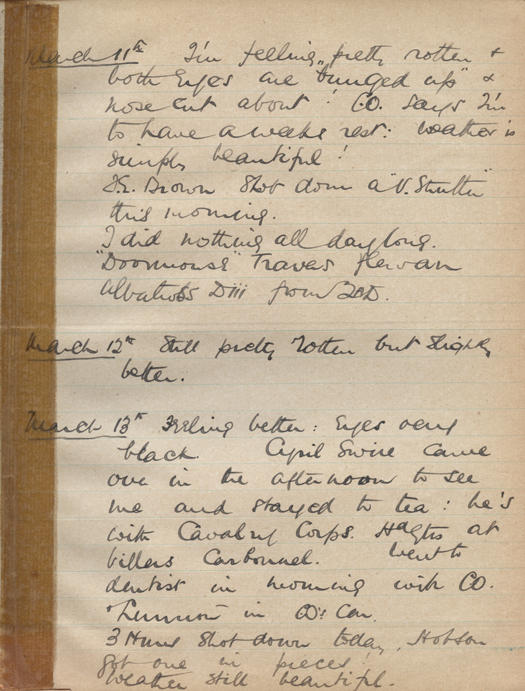 March 11th I'm feeling "pretty rotten &
both Eyes are "bunged up" &
nose cut about! C.O. says I'm
to have a weeks rest: weather is
simply beautiful!
F.E. Brown shot down a "V. Strutter"
this morning.
I did nothing all day long.
"Doormouse" Travers flew an
Albatross Diii from 2 A.D.
March 12th Still pretty rotten but slightly
better.
March 13th Feeling better: Eyes very
black Cyril Swire came
over in the afternoon to see
me and stayed to tea: he's
with Cavalry Corps. Hdqtrs at
Villers Carbonnel. Went to
dentist in morning with CO.
in CO's car.
3 Huns shot down today, Hobson
got one in pieces!
Weather still beautiful.